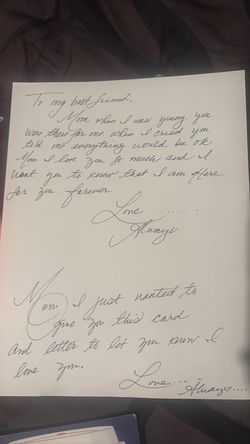 To my best friend,
Mom when I was young you
were there for me. when I cried you
told me everything would be ok
Mom I love you so much and I
want you to know that I am Here
for you. forever.
Love ......
Always
Mom I just wanted to
give you this card
and letter to let you know I
love you.
Love....
Always....